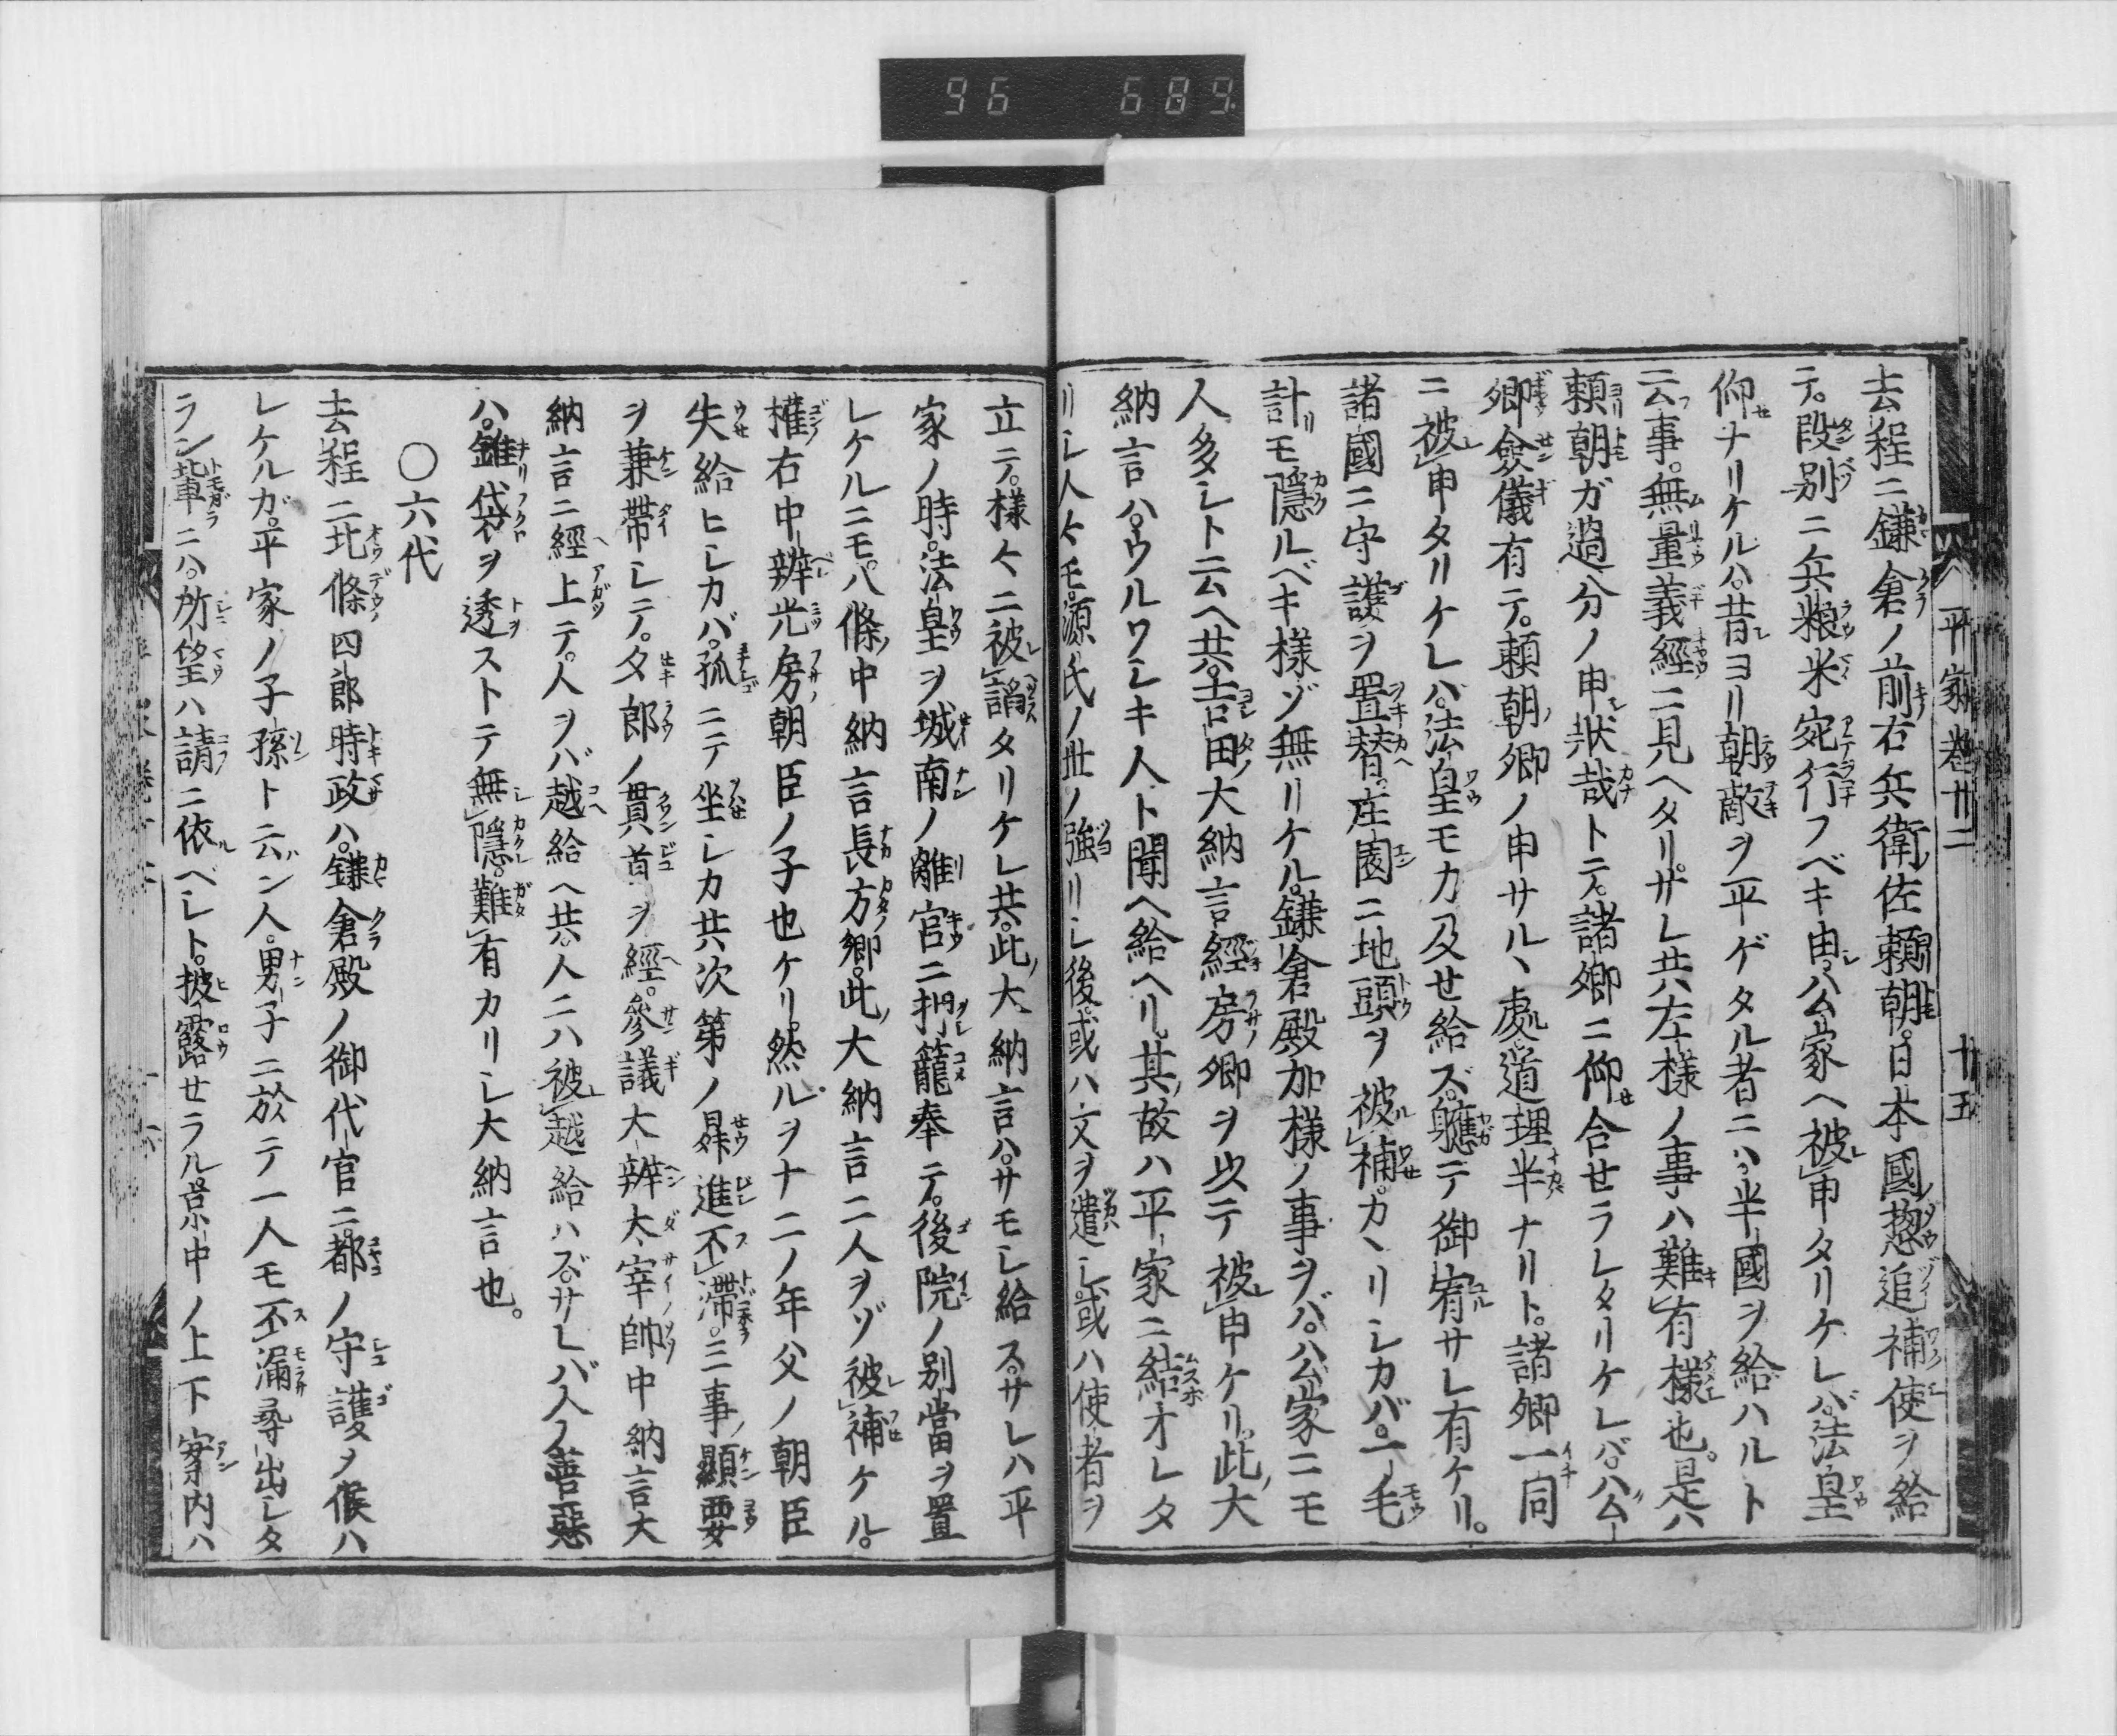 96 689
平家巻廿二 廿五
去程ニ鎌倉ノ前右兵衛佐頼朝。日本國惣追補使ヲ給
テ。段別ニ兵粮米宛行フベキ由。公家ヘ被申タリケレバ。法皇
仰ナリケルハ。昔ヨリ朝敵ヲ平ゲタル者ニハ。半國ヲ給ハルト
云事。無量義經ニ見ヘタリ。サレ共左樣ノ事ハ難有樣也。是ハ
頼朝ガ過分ノ申狀哉トテ。諸卿ニ仰合セラレタリケレバ。公
卿僉儀有テ。頼朝卿ノ申サルヽ處。道理半ナリト。諸卿一同
ニ被申タリケレバ。法皇モカ及せ給ズ。軈テ御宥サレ有ケリ。
諸國ニ守護ヲ置替。庄園ニ地頭ヲ被補。カヽリシカバ。一毛
計モ隱ルベキ樣ゾ無リケル。鎌倉殿加樣ノ事ヲバ。公家ニモ
人多シト云ヘ共。吉田大納言經房卿ヲ以テ被申ケリ。此大
納言ハ。ウルワシキ人ト聞ヘ給ヘリ。其故ハ平家ニ結オレタ
リシ人々モ。源氏ノ世ノ強リシ後。或ハ文ヲ遣シ。或ハ使者ヲ
立テ。樣々ニ被諂タリケレ共。此大納言ハ。サモシ給ス。サレハ平
家ノ時。法皇ヲ城南ノ離宮ニ押籠奉テ。後院ノ別當ヲ置
レケルニモ。八條中納言長方卿。此大納言二人ヲゾ被補ケル。
權右中辨光房朝臣ノ子也ケリ。然ルヲ十二ノ年父ノ朝臣
失給ヒシカバ。孤ニテ坐シカ共次第ノ昇進不滯。三事顯要
ヲ兼帶シテ。夕郎ノ貫首ヲ經。參議大辨太宰帥中納言大
納言ニ經上テ。人ヲバ越給ヘ共。人ニハ被越給ハズ。サレバ人ノ善惡
ハ。錐袋ヲ透ストテ無隱。難有カリシ大納言也。
〇六代
去程ニ北條四郎時政ハ。鎌倉殿ノ御代官ニ。都ノ守護ノ候ハ
レケルガ。平家ノ子孫ト云ン人。男子ニ於テ一人モ不漏尋出シタ
ラン輩ニハ。所望ハ請ニ依ベシト。披露セラル。京中ノ上下案内ハ